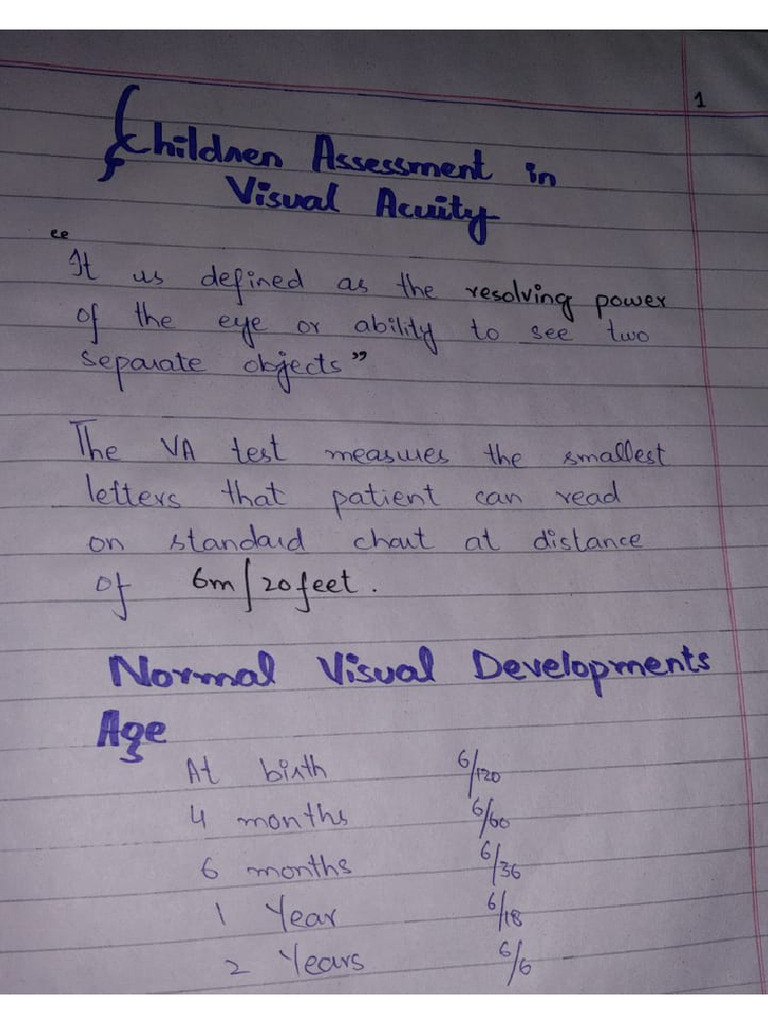 1
Children Assessment in
Visual Acuity
"It us defined as the resolving power
of the eye or ability to see two
separate objects"
The VA test measures the smallest
letters that patient can read
on standard chart at distance
of 6m/20feet.
Normal Visual Developments
Age
At birth 6/120
4 months 6/60
6 months 6/36
1 Year 6/18
2 Years 6/6